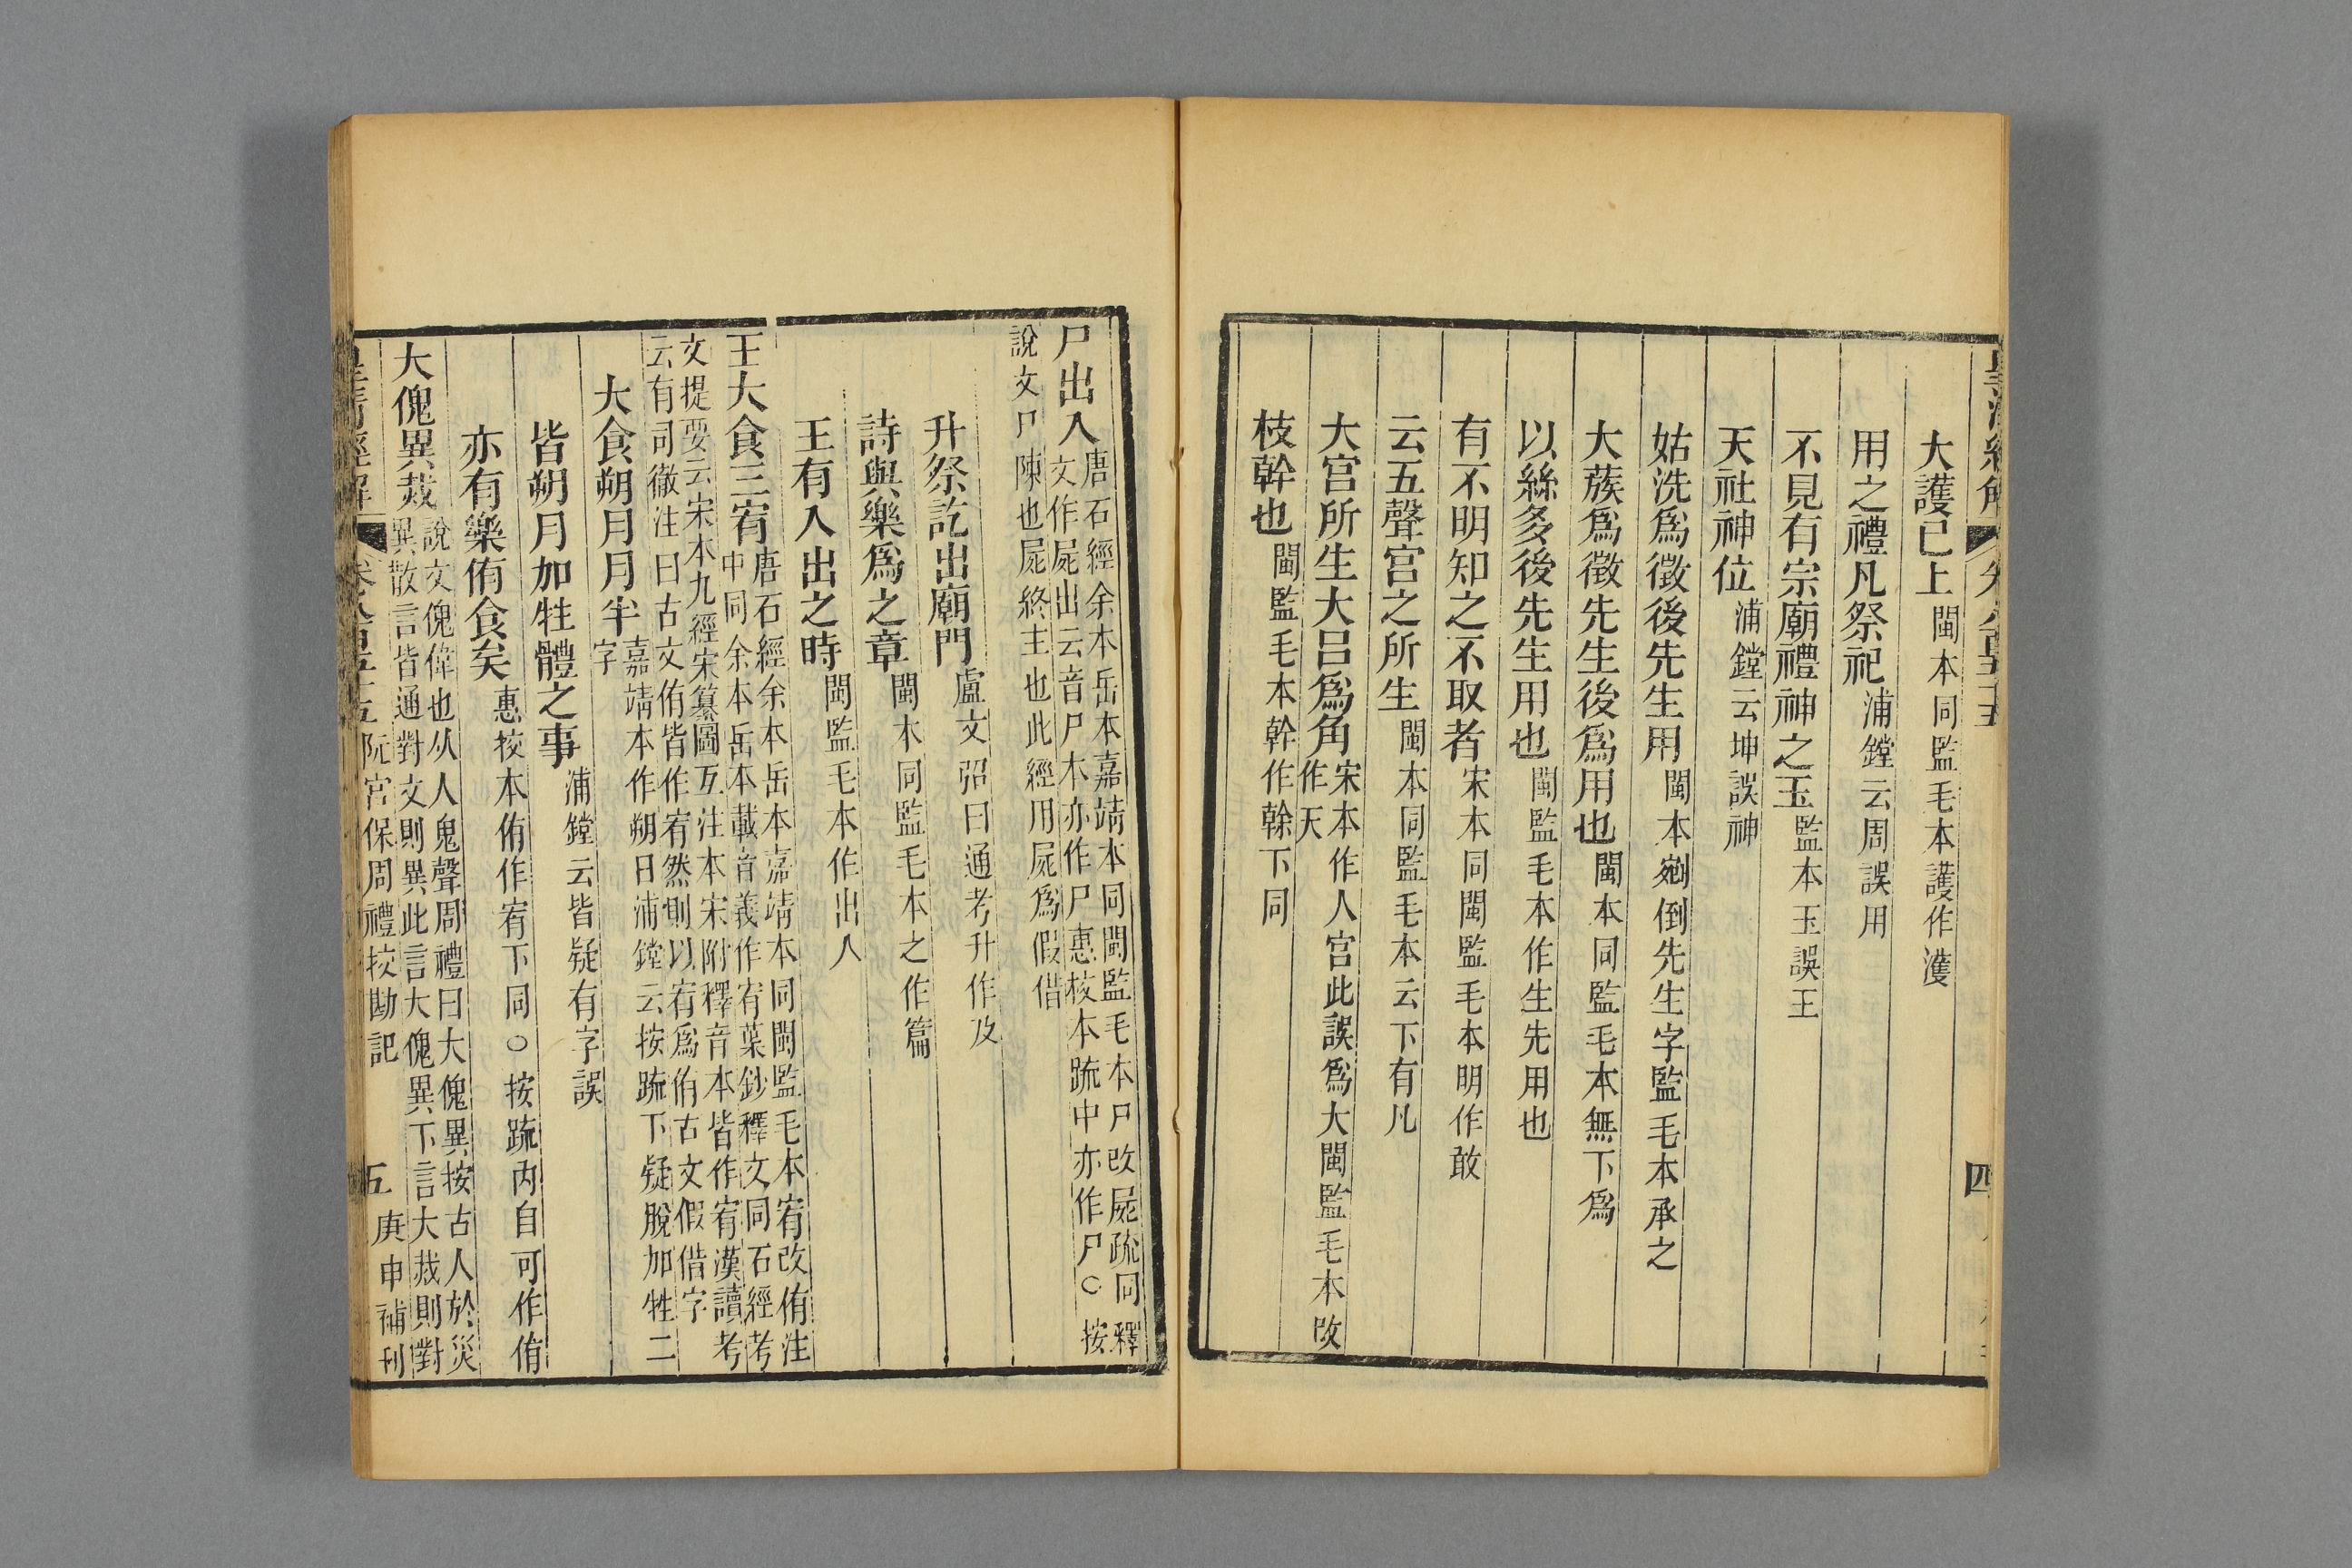 大護已上閩本同監毛本護作濩
用之禮凡祭祀浦鏜云周誤用
不見有宗廟禮神之玉監本玉誤王
天社神位浦鏜云坤誤神
姑洗爲徵後先生用閩本剜倒先生字監毛本承之
大蔟爲徵先生後爲用也閩本同監毛本無下爲
以絲多後先生用也閩監毛本作生先用也
有不明知之不取者宋本同閩監毛本明作敢
云五聲宫之所生閩本同監毛本云下有凡
大宫所生大呂爲角宋本作人宫此誤爲大閩監毛本改
作天
枝幹也閩監毛本幹作榦下同
四
尸出入唐石經余本岳本嘉靖本同閩監毛本尸改屍疏同釋
文作屍出云音尸本亦作尸惠校本疏中亦作尸○按
說文尸陳也屍終主也此經用屍爲假借
升祭訖出廟門盧文弨曰通考升作及
詩與樂爲之章閩本同監毛本之作篇
王有入出之時閩監毛本作出入
王大食三宥唐石經余本岳本嘉靖本同閩監毛本宥改侑注
中同余本岳本載音義作宥葉鈔釋文同石經考
文提要云宋本九經宋纂圖互注本宋附釋音本皆作宥漢讀考
云有司徹注曰古文侑皆作宥然則以宥爲侑古文假借字
大食朔月月半嘉靖本作朔日浦鏜云按疏下疑脫加牲二
字
皆朔月加牲體之事浦鏜云皆疑有字誤
亦有樂侑食矣惠挍本侑作宥下同○按疏内自可作侑
大傀異烖說文傀偉也从人鬼聲周禮曰大傀異按古人於災
異散言皆通對文則異此言大傀異下言大烖則對
皇清經解 卷八百五十五 阮宫保周禮挍勘記 五 庚申補刊